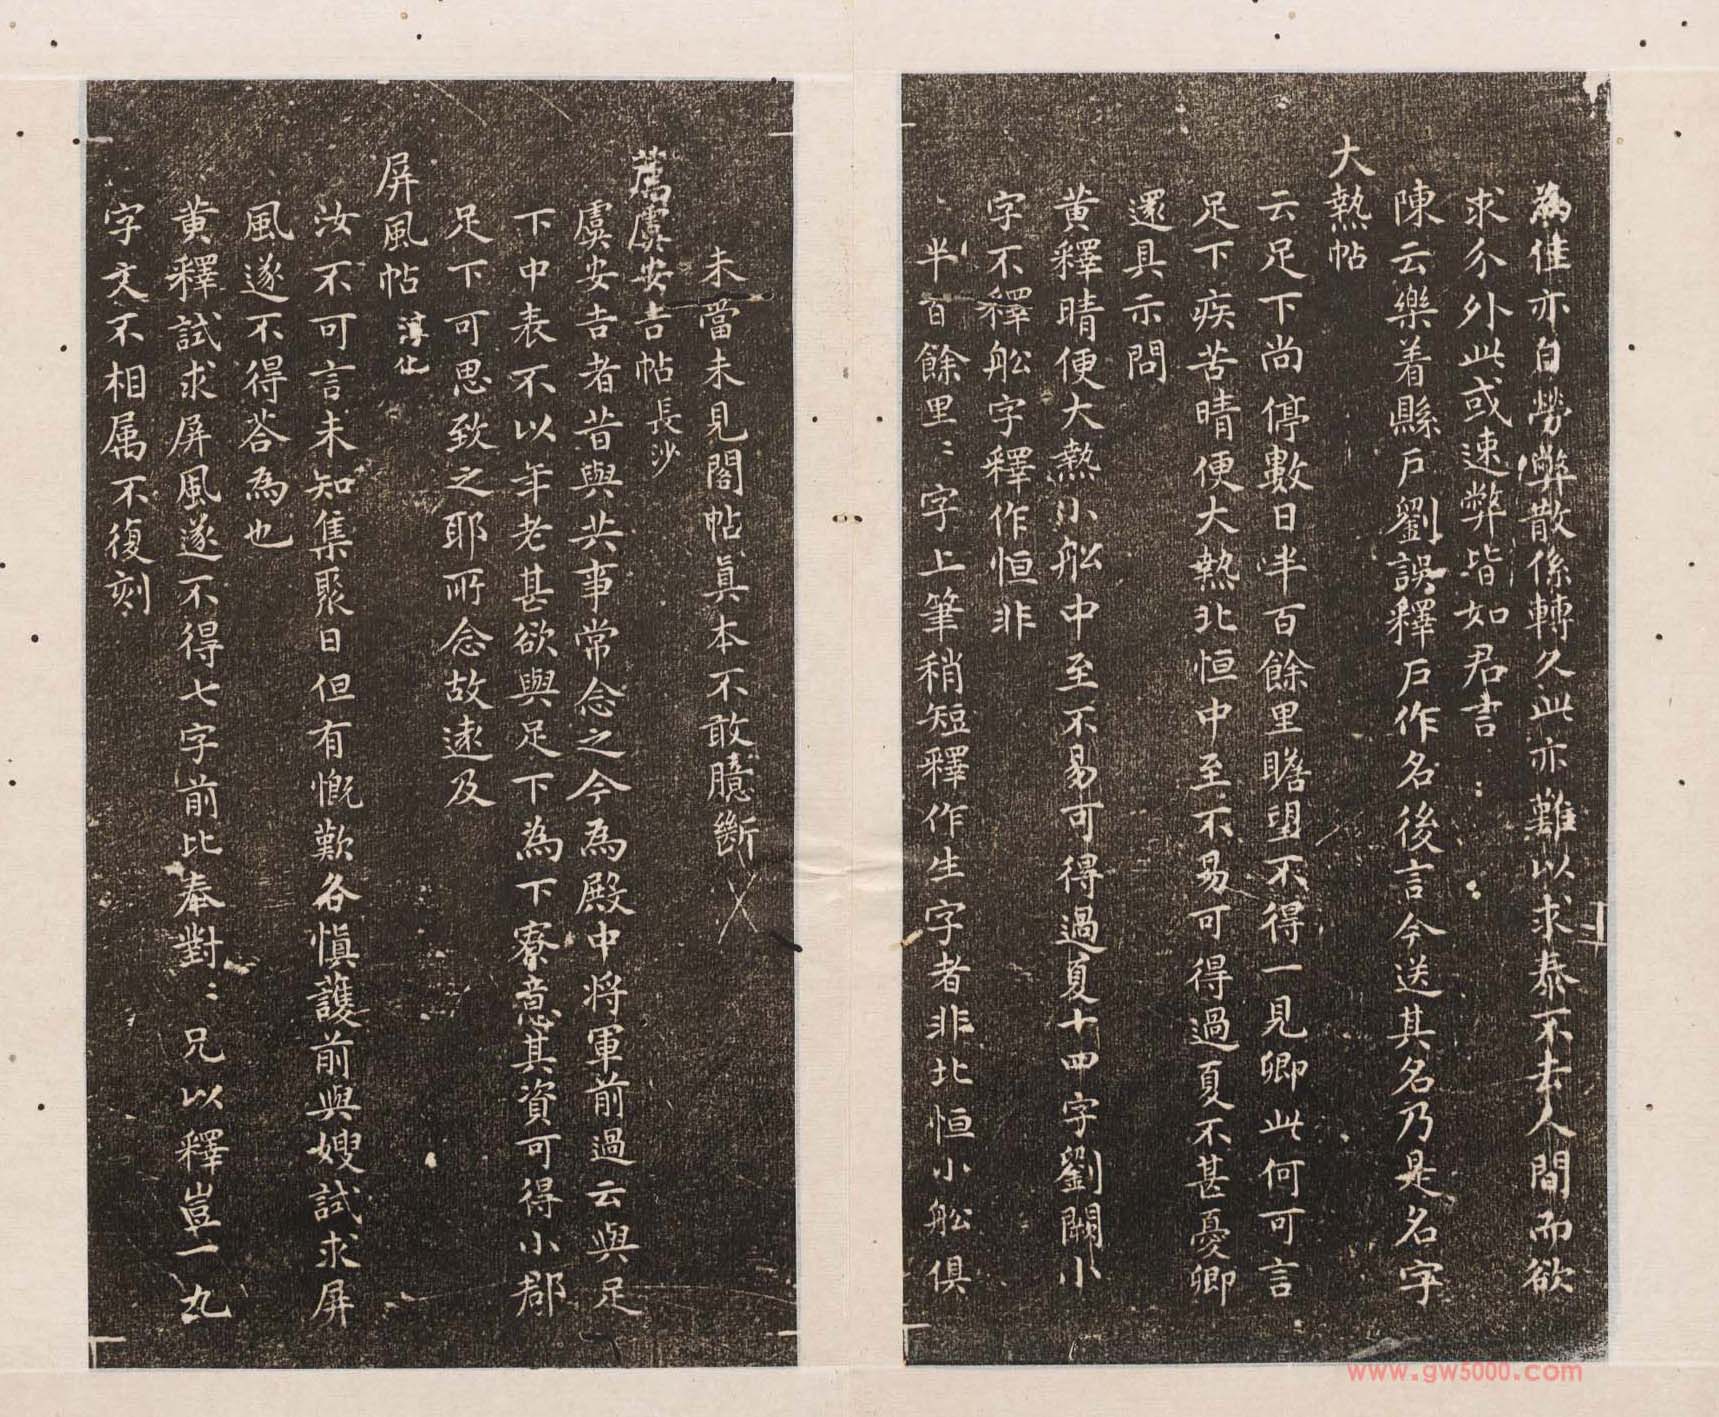 為佳亦自勞弊散係轉久此亦難以求泰不去人間而欲
求分外此或速弊皆如君言
陳云樂着縣戶劉誤釋戶作名後言今送其名乃是名字
大熱帖
云足下尚停數日半百餘里瞻望不得一見卿此何可言
足下疾苦晴便大熱北恒中至不易可得過夏不甚憂卿
還具示問
黄釋晴便大熱小舩中至不易可得過夏十四字劉闕小
字不釋舩字釋作恒非
半百餘里：字上筆稍短釋作生字者非北恒小舩俱
未當未見閣帖真本不敢臆斷
薦虞安吉帖 長沙
虞安吉者昔與共事常念之今為殿中将軍前過云與足
下中表不以年老甚欲與足下為下寮意其資可得小郡
足下可思致之耶所念故遠及
屏風帖 淳化
汝不可言未知集聚日但有慨歎各慎護前與嫂試求屏
風遂不得荅為也
黄釋試求屏風遂不得七字前比奉對：兄以釋豈一九
字文不相属不復刻
www.gw5000.com